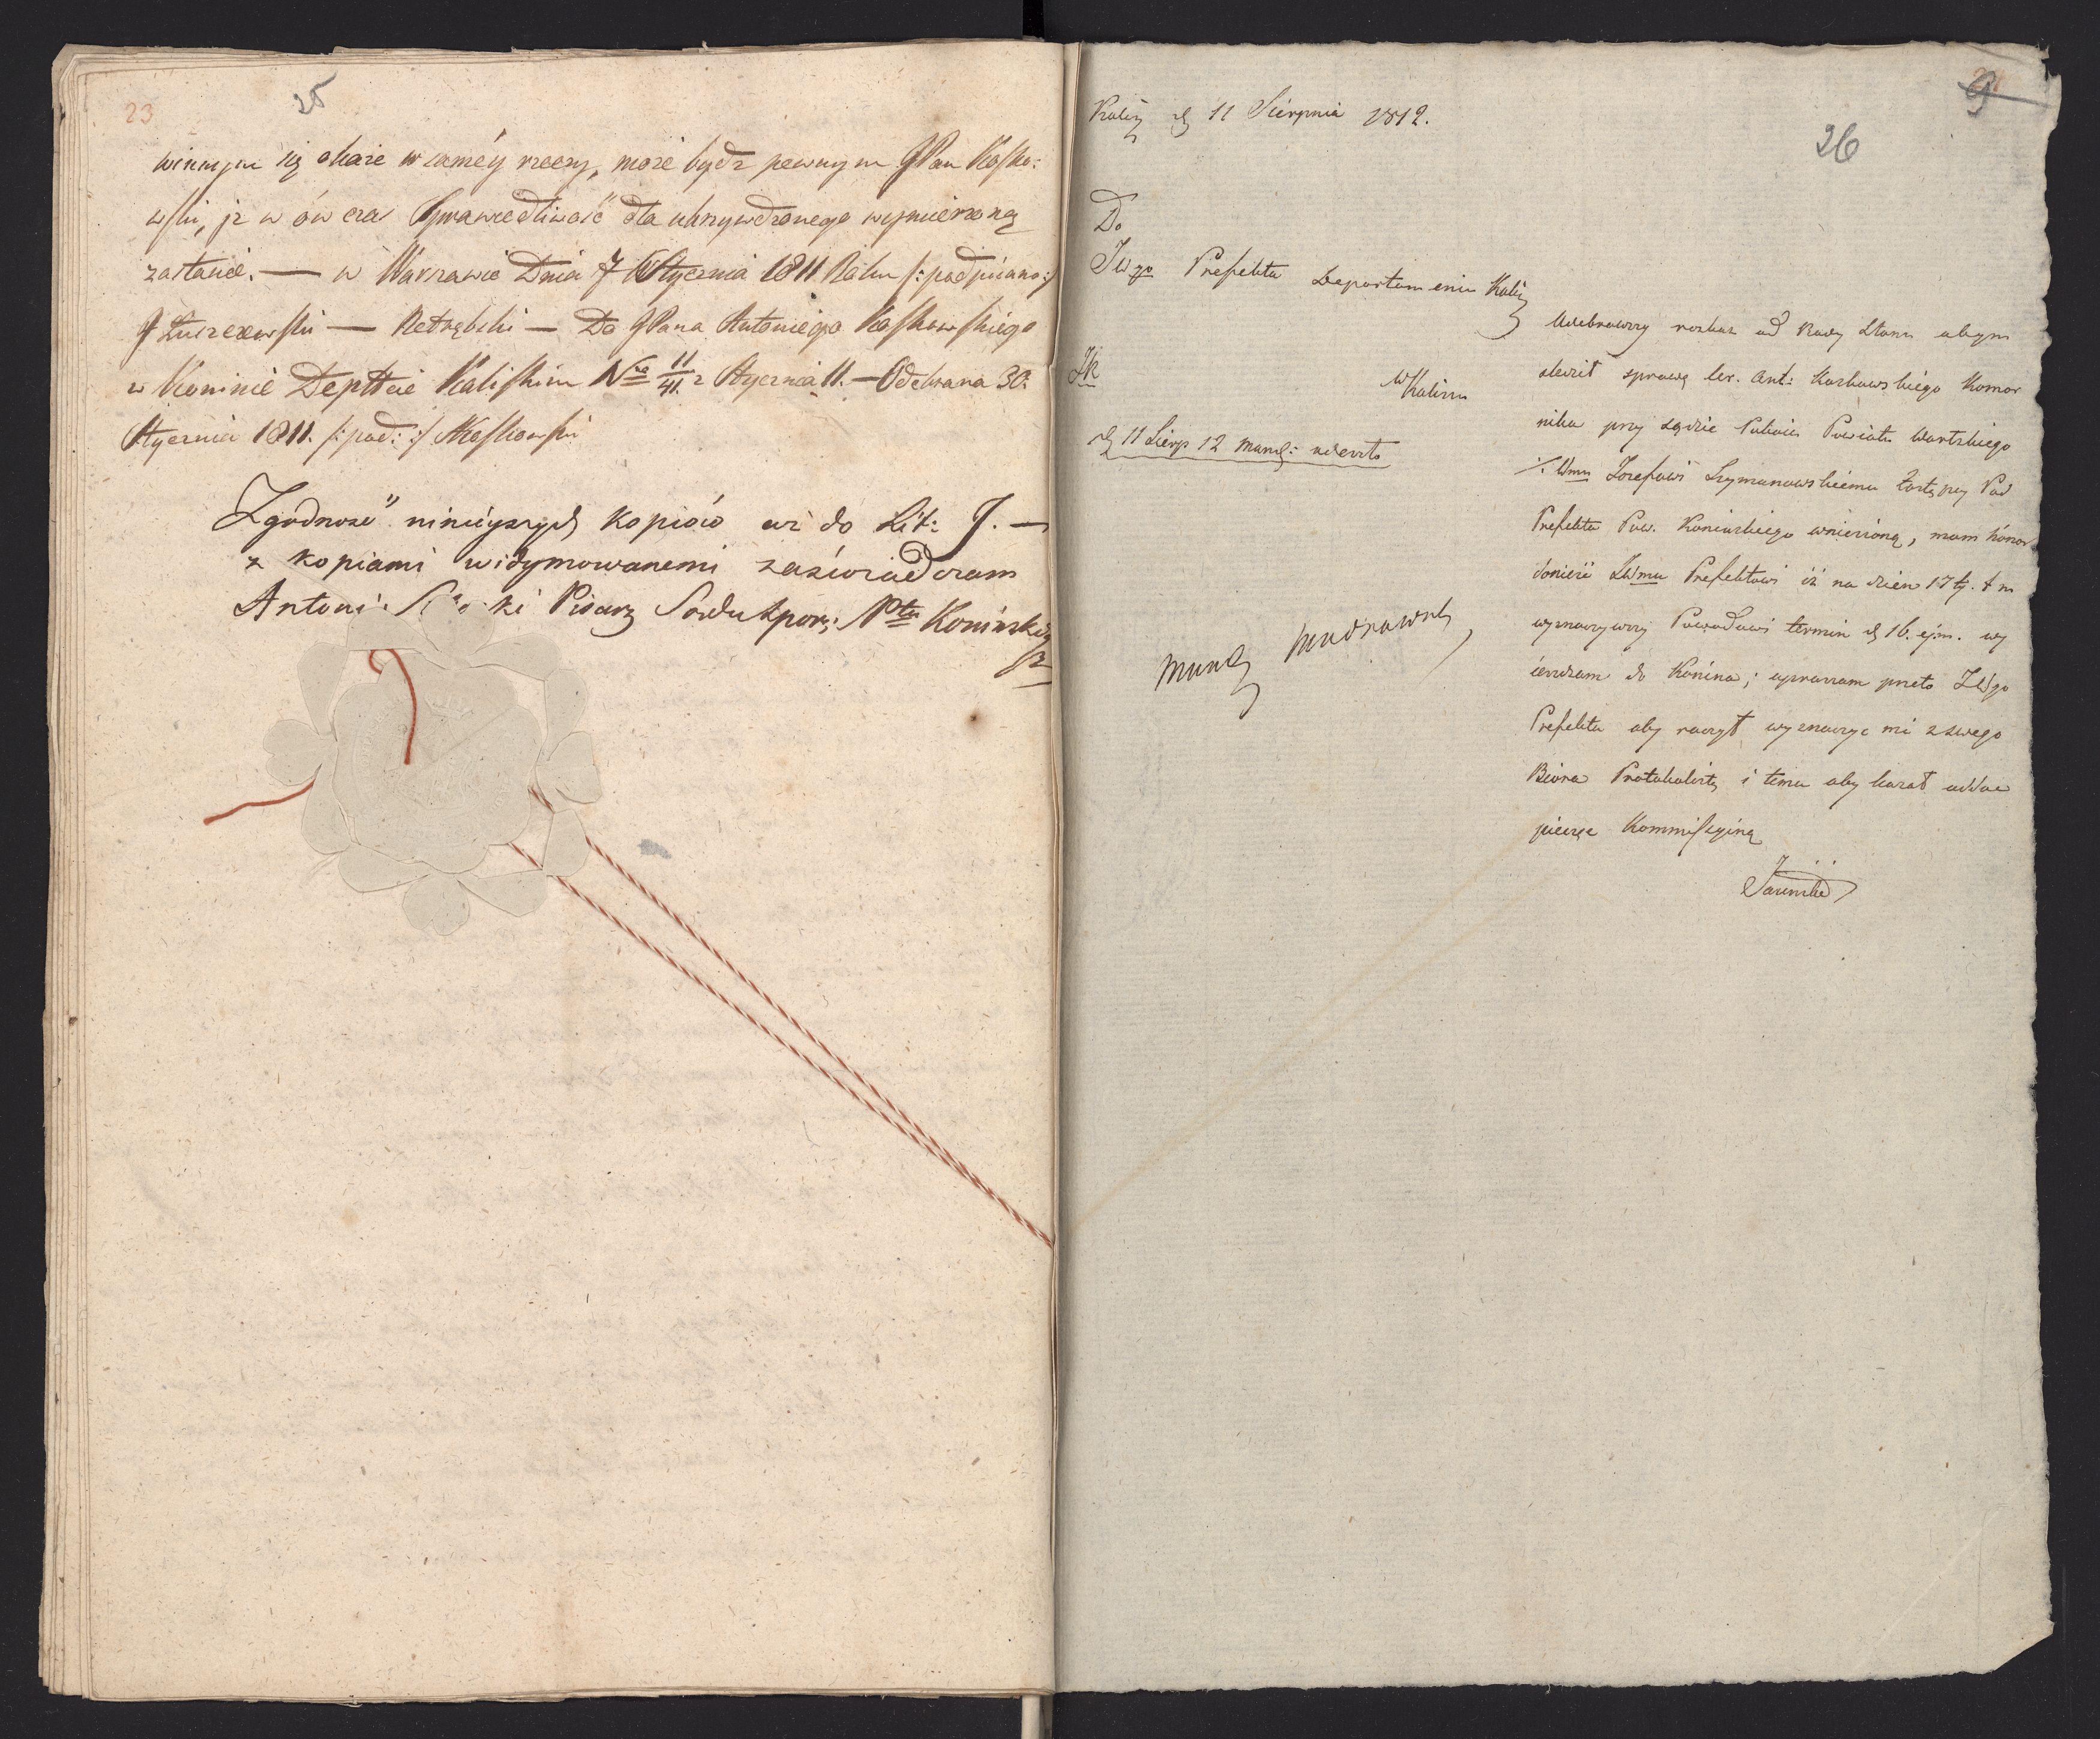 23
25
winnym się okaże w saméy rzeczy, może bydz pewnym JPan Kosko:
wski, jż w ów czas Sprawiedliwość dla ukrzywdzonego wymierzoną
zostanie. — w Warszawie Dnia 7 Stycznia 1811 Roku /: podpisano :/
J Łuszczewski — Do JPana Antoniego Koskowskiego
w Koninie Deptcie Kaliskim Nro 11/41. z Stycznia 11. — Odebrana 30.
Stycznia 1811. /: pod: :/ AKoskowski
Zgodność ninieyszych kopiów aż do Lit: J. —
z kopiami widymowanemi zaświadczam
Antoni Pisarz Sądu Spor: Ptu Konińskieg
26
Kalisz d 11 Sierpnia 1812.
Do
JWgo Prefekta Departamentu Kalis
w Kaliszu
d 11 Sierp 12
Odebrawszy rozkaz od Rady Stanu abym
sledził sprawę Ur. Ant: Koskowskiego Komor
nika przy Sądzie Pokoiu Powiatu Wartskiego
%. Wmu Jozefowi Szymanowskiemu Pod
Prefektu Pow. Koninskiego wniesioną, mam honor
donieść JWmu Prefektowi iż na dzien 17 tego m
wyznaczywszy Powodowi termin d 16. ej. m. wy
ieżdżam do Konina; upraszam przeto JWgo
Prefekta aby raczył wyznaczyc mi z swego
Biora Protokolistę i temu aby kazał oddac
pieczęc Kommissyiną